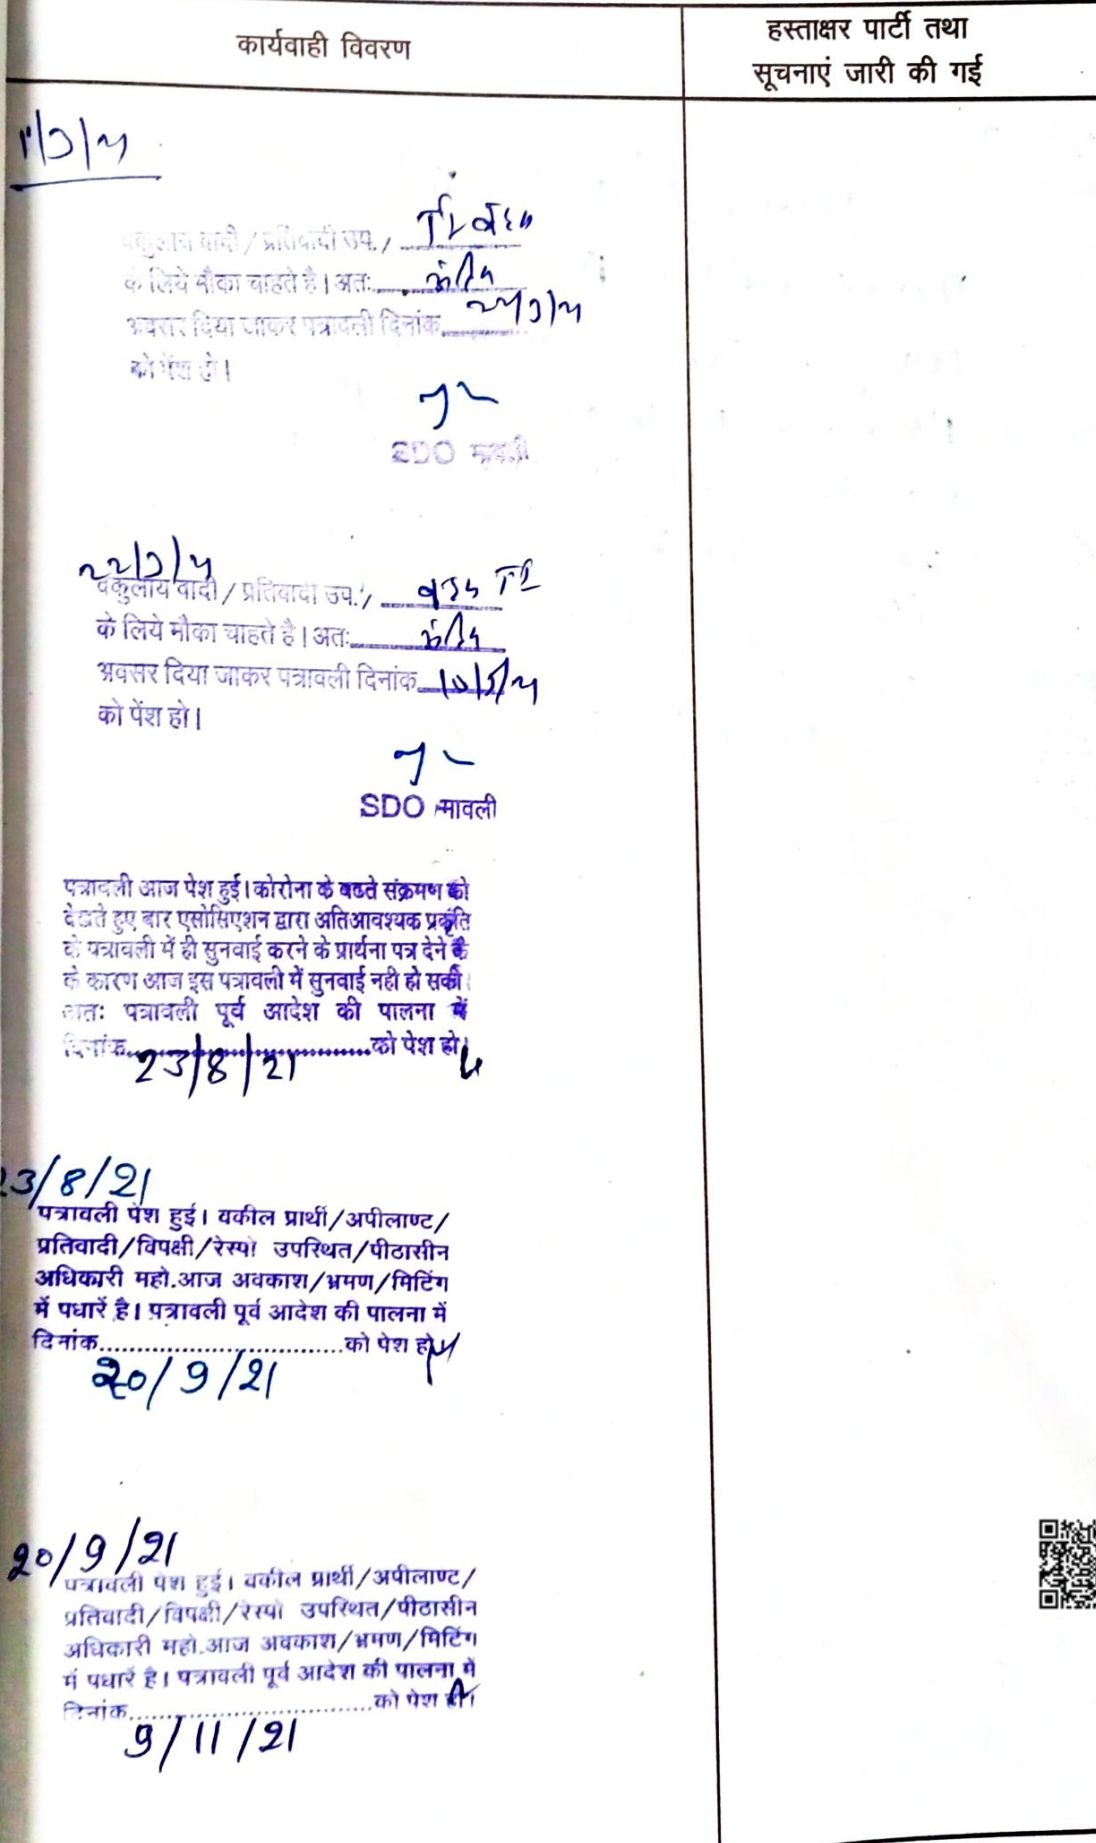 कार्यवाही विवरण
हस्ताक्षर पार्टी तथा
सूचनाएं जारी की गई
वकुलाय वादी / प्रतिवादी उप. /
के लिये मौका चाहते है। अतः
अवसर दिया जाकर पत्रावली दिनांक
को पेंश हो।
SDO मावली
वकुलाय वादी / प्रतिवादी उप. / बहस TI
के लिये मौका चाहते है। अतः
अवसर दिया जाकर पत्रावली दिनांक
को पेंश हो।
SDO मावली
पत्रावली आज पेश हुई। कोरोना के बढते संक्रमण को
देखते हुए बार एसोसिएशन द्वारा अतिआवश्यक प्रकृति
के पत्रावली में ही सुनवाई करने के प्रार्थना पत्र देने के
के कारण आज इस पत्रावली में सुनवाई नही हो सकी।
अतः पत्रावली पूर्व आदेश की पालना में
दिनांक..............................को पेश हो।
23/8/21
23/8/21
पत्रावली पेश हुई। वकील प्रार्थी/अपीलाण्ट/
प्रतिवादी/विपक्षी/रेस्पो उपस्थित/पीठासीन
अधिकारी महो.आज अवकाश/भ्रमण/मिटिंग
में पधारें है। पत्रावली पूर्व आदेश की पालना में
दिनांक..................................को पेश हो
20/9/21
20/9/21
पत्रावली पेश हुई। वकील प्रार्थी/अपीलाण्ट/
प्रतिवादी/विपक्षी/रेस्पो उपस्थित/पीठासीन
अधिकारी महो.आज अवकाश/भ्रमण/मिटिंग
में पधारें है। पत्रावली पूर्व आदेश की पालना में
दिनांक..................................को पेश हो।
9/11/21